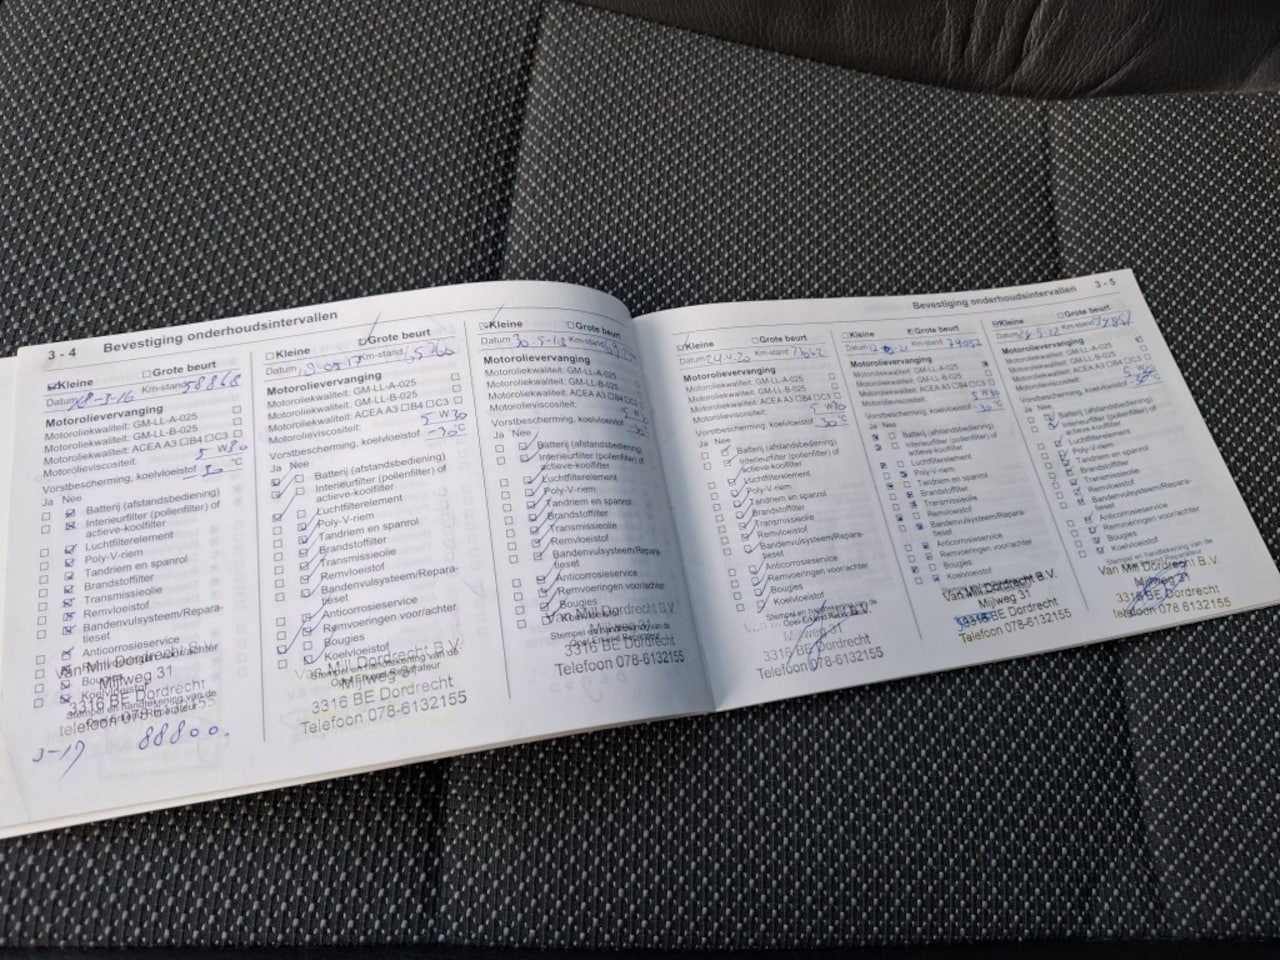 3 - 4 Bevestiging onderhoudsintervallen
Kleine Grote beurt
Datum 18-3-16 Km-stand 58868
Motorolievervanging
Motoroliekwaliteit: GM-LL-A-025
Motoroliekwaliteit: GM-LL-B-025
Motoroliekwaliteit: ACEA A3 B4 C3
Motorolieviscositeit: 5 W 30
Vorstbescherming, koelvloeistof -30 °C
Ja Nee
Batterij (afstandsbediening)
Interieurfilter (pollenfilter) of
actieve-koolfilter
Luchtfilterelement
Poly-V-riem
Tandriem en spanrol
Brandstoffilter
Transmissieolie
Remvloeistof
Bandenvulsysteem/Repara-
tieset
Anticorrosieservice
Remvoeringen voor/achter
Bougies
Koelvloeistof
Stempel en handtekening van de
Opel Erkend Reparateur
Van Mill Dordrecht B.V.
Mijlweg 31
3316 BE Dordrecht
telefoon 078-6132155
88800.
Kleine Grote beurt
Datum Km-stand
Motorolievervanging
Motoroliekwaliteit: GM-LL-A-025
Motoroliekwaliteit: GM-LL-B-025
Motoroliekwaliteit: ACEA A3 B4 C3
Motorolieviscositeit: 5 W 30
Vorstbescherming, koelvloeistof -30 °C
Ja Nee
Batterij (afstandsbediening)
Interieurfilter (pollenfilter) of
actieve-koolfilter
Luchtfilterelement
Poly-V-riem
Tandriem en spanrol
Brandstoffilter
Transmissieolie
Remvloeistof
Bandenvulsysteem/Repara-
tieset
Anticorrosieservice
Remvoeringen voor/achter
Bougies
Koelvloeistof
Stempel en handtekening van de
Opel Erkend Reparateur
Van Mill Dordrecht B.V.
Mijlweg 31
3316 BE Dordrecht
Telefoon 078-6132155
Kleine Grote beurt
Datum 30-5-18 Km-stand
Motorolievervanging
Motoroliekwaliteit: GM-LL-A-025
Motoroliekwaliteit: GM-LL-B-025
Motoroliekwaliteit: ACEA A3 B4 C3
Motorolieviscositeit: 5 W
Vorstbescherming, koelvloeistof
Ja Nee
Batterij (afstandsbediening)
Interieurfilter (pollenfilter) of
actieve-koolfilter
Luchtfilterelement
Poly-V-riem
Tandriem en spanrol
Brandstoffilter
Transmissieolie
Remvloeistof
Bandenvulsysteem/Repara-
tieset
Anticorrosieservice
Remvoeringen voor/achter
Bougies
Koelvloeistof
Stempel en handtekening van de
Opel Erkend Reparateur
Van Mill Dordrecht B.V.
Mijlweg 31
3316 BE Dordrecht
Telefoon 078-6132155
Bevestiging onderhoudsintervallen 3 - 5
Kleine Grote beurt
Datum 24.4.20 Km-stand
Motorolievervanging
Motoroliekwaliteit: GM-LL-A-025
Motoroliekwaliteit: GM-LL-B-025
Motoroliekwaliteit: ACEA A3 B4 C3
Motorolieviscositeit: 5 W 30
Vorstbescherming, koelvloeistof 30 °C
Ja Nee
Batterij (afstandsbediening)
Interieurfilter (pollenfilter) of
actieve-koolfilter
Luchtfilterelement
Poly-V-riem
Tandriem en spanrol
Brandstoffilter
Transmissieolie
Remvloeistof
Bandenvulsysteem/Repara-
tieset
Anticorrosieservice
Remvoeringen voor/achter
Bougies
Koelvloeistof
Stempel en handtekening van de
Opel Erkend Reparateur
Van Mill Dordrecht B.V.
Mijlweg 31
3316 BE Dordrecht
Telefoon 078-6132155
Kleine Grote beurt
Datum Km-stand 74052
Motorolievervanging
Motoroliekwaliteit: GM-LL-A-025
Motoroliekwaliteit: GM-LL-B-025
Motoroliekwaliteit: ACEA A3 B4 C3
Motorolieviscositeit: 5 W 30
Vorstbescherming, koelvloeistof -30 °C
Ja Nee
Batterij (afstandsbediening)
Interieurfilter (pollenfilter) of
actieve-koolfilter
Luchtfilterelement
Poly-V-riem
Tandriem en spanrol
Brandstoffilter
Transmissieolie
Remvloeistof
Bandenvulsysteem/Repara-
tieset
Anticorrosieservice
Remvoeringen voor/achter
Bougies
Koelvloeistof
Van Mill Dordrecht B.V.
Mijlweg 31
3316 BE Dordrecht
Telefoon 078-6132155
Kleine Grote beurt
Datum Km-stand
Motorolievervanging
Motoroliekwaliteit: GM-LL-A-025
Motoroliekwaliteit: GM-LL-B-025
Motoroliekwaliteit: ACEA A3 B4 C3
Motorolieviscositeit:
Vorstbescherming, koelvloeistof
Ja Nee
Batterij (afstandsbediening)
Interieurfilter (pollenfilter) of
actieve-koolfilter
Luchtfilterelement
Poly-V-riem
Tandriem en spanrol
Brandstoffilter
Transmissieolie
Remvloeistof
Bandenvulsysteem/Repara-
tieset
Anticorrosieservice
Remvoeringen voor/achter
Bougies
Koelvloeistof
Stempel en handtekening van de
Opel Erkend Reparateur
Van Mill Dordrecht B.V.
Mijlweg 31
3316 BE Dordrecht
telefoon 078-6132155